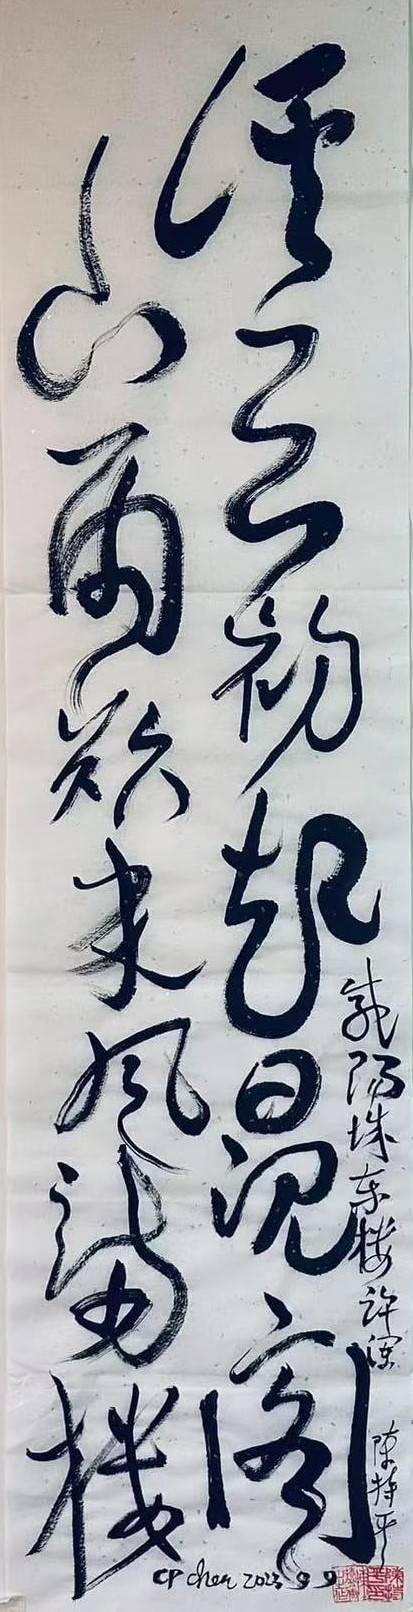 溪云初起日沉阁
山雨欲来风满楼
咸阳城东楼 许浑
陈持平
CP chen 2023 9 9